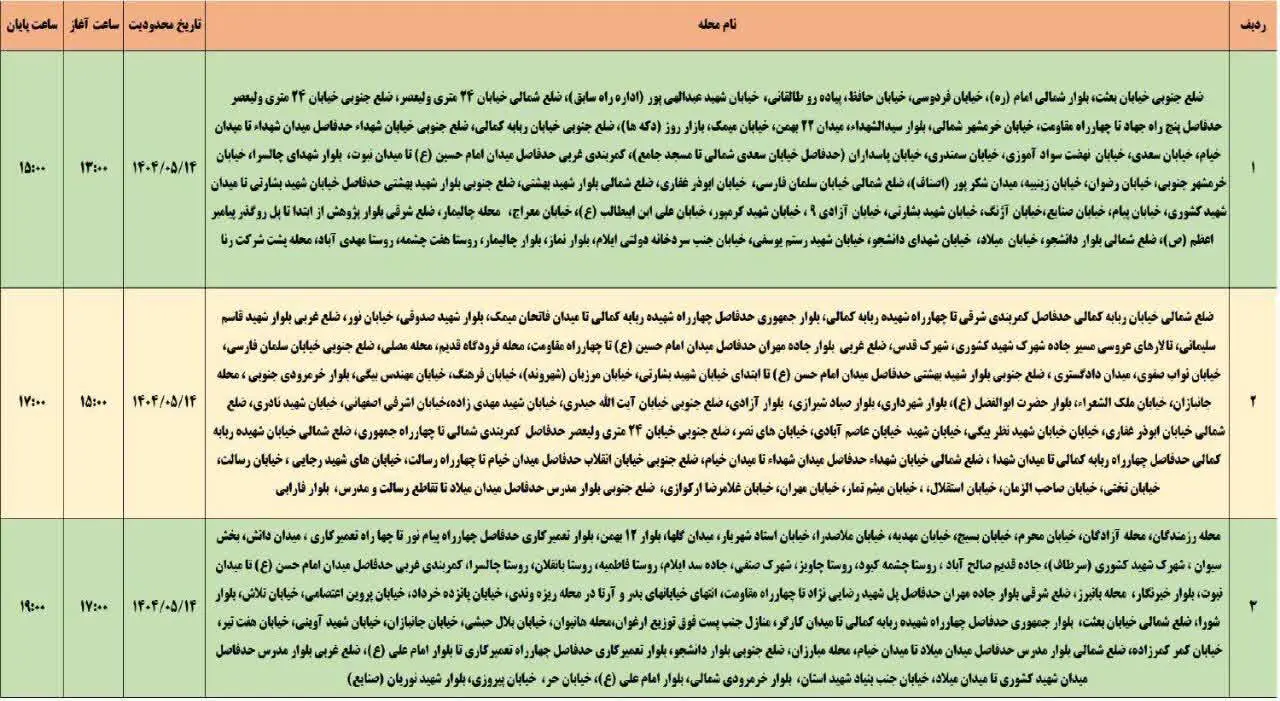 ردیف
نام محله
تاریخ محدودیت
ساعت آغاز
ساعت پایان
۱
ضلع جنوبی خیابان بعثت، بلوار شمالی امام (ره)، خیابان فردوسی، خیابان حافظ، پیاده رو طالقانی، خیابان شهید عبدالهی پور (اداره راه سابق)، ضلع شمالی خیابان ۲۴ متری ولیعصر، ضلع جنوبی خیابان ۲۴ متری ولیعصر
حدفاصل پنج راه جهاد تا چهارراه مقاومت، خیابان خرمشهر شمالی، بلوار سیدالشهداء، میدان ۲۲ بهمن، خیابان میمک، بازار روز (دکه ها)، ضلع جنوبی خیابان ربابه کمالی، ضلع جنوبی خیابان شهداء حدفاصل میدان شهداء تا میدان
خیام، خیابان سعدی، خیابان نهضت سواد آموزی، خیابان سمندری، خیابان پاسداران (حدفاصل خیابان سعدی شمالی تا مسجد جامع)، کمربندی غربی حدفاصل میدان امام حسین (ع) تا میدان نبوت، بلوار شهدای چالسرا، خیابان
خرمشهر جنوبی، خیابان رضوان، خیابان زینبیه، میدان شکر پور (اصناف)، ضلع شمالی خیابان سلمان فارسی، خیابان ابوذر غفاری، ضلع شمالی بلوار شهید بهشتی، ضلع جنوبی بلوار شهید بهشتی حدفاصل خیابان شهید بشارتی تا میدان
شهید کشوری، خیابان پیام، خیابان صنایع،خیابان آژنگ، خیابان شهید بشارتی، خیابان آزادی ۹ ، خیابان شهید کرمپور، خیابان علی ابن ابیطالب (ع)، خیابان معراج، محله چالیمار، ضلع شرقی بلوار پژوهش از ابتدا تا پل روگذر پیامبر
اعظم (ص)، ضلع شمالی بلوار دانشجو، خیابان میلاد، خیابان شهدای دانشجو، خیابان شهید رستم یوسفی، خیابان جنب سردخانه دولتی ایلام، بلوار نماز، بلوار چالیمار، روستا هفت چشمه، روستا مهدی آباد، محله پشت شرکت رنا
۱۴۰۴/۰۵/۱۴
۱۳:۰۰
۱۵:۰۰
۲
ضلع شمالی خیابان ربابه کمالی حدفاصل کمربندی شرقی تا چهارراه شهیده ربابه کمالی، بلوار جمهوری حدفاصل چهارراه شهیده ربابه کمالی تا میدان فاتحان میمک، بلوار شهید صدوقی، خیابان نور، ضلع غربی بلوار شهید قاسم
سلیمانی، تالارهای عروسی مسیر جاده شهرک شهید کشوری، شهرک قدس، ضلع غربی بلوار جاده مهران حدفاصل میدان امام حسین (ع) تا چهارراه مقاومت، محله فرودگاه قدیم، محله مصلی، ضلع جنوبی خیابان سلمان فارسی،
خیابان نواب صفوی، میدان دادگستری ، ضلع جنوبی بلوار شهید بهشتی حدفاصل میدان امام حسن (ع) تا ابتدای خیابان شهید بشارتی، خیابان مرزبان (شهروند)، خیابان فرهنگ، خیابان مهندس بیگی، بلوار خرمرودی جنوبی ، محله
جانبازان، خیابان ملک الشعراء، بلوار حضرت ابوالفضل (ع)، بلوار شهرداری، بلوار صیاد شیرازی، بلوار آزادی، ضلع جنوبی خیابان آیت الله حیدری، خیابان شهید مهدی زاده،خیابان اشرفی اصفهانی، خیابان شهید نادری، ضلع
شمالی خیابان ابوذر غفاری، خیابان خیابان شهید نظر بیگی، خیابان شهید خیابان عاصم آبادی، خیابان های نصر، ضلع جنوبی خیابان ۲۴ متری ولیعصر حدفاصل کمربندی شمالی تا چهارراه جمهوری، ضلع شمالی خیابان شهیده ربابه
کمالی حدفاصل چهارراه ربابه کمالی تا میدان شهدا ، ضلع شمالی خیابان شهداء حدفاصل میدان شهداء تا میدان خیام، ضلع جنوبی خیابان انقلاب حدفاصل میدان خیام تا چهارراه رسالت، خیابان های شهید رجایی ، خیابان رسالت،
خیابان تختی، خیابان صاحب الزمان، خیابان استقلال، ، خیابان میثم تمار، خیابان مهران، خیابان غلامرضا ارکوازی، ضلع جنوبی بلوار مدرس حدفاصل میدان میلاد تا تقاطع رسالت و مدرس، بلوار فارابی
۱۴۰۴/۰۵/۱۴
۱۵:۰۰
۱۷:۰۰
۳
محله رزمندگان، محله آزادگان، خیابان محرم، خیابان بسیج، خیابان مهدیه، خیابان ملاصدرا، خیابان استاد شهریار، میدان گلها، بلوار ۱۲ بهمن، بلوار تعمیرکاری حدفاصل چهارراه پیام نور تا چها راه تعمیرکاری ، میدان دانش، بخش
سیوان ، شهرک شهید کشوری (سرطاف)، جاده قدیم صالح آباد ، روستا چشمه کبود، روستا چاویز، شهرک صنفی، جاده سد ایلام، روستا فاطمیه، روستا بانقلان، روستا چالسرا، کمربندی غربی حدفاصل میدان امام حسن (ع) تا میدان
نبوت، بلوار خبرنگار، محله بانبرز، ضلع شرقی بلوار جاده مهران حدفاصل پل شهید رضایی نژاد تا چهارراه مقاومت، انتهای خیابانهای بدر و آرتا در محله ریزه وندی، خیابان پانزده خرداد، خیابان پروین اعتصامی، خیابان تلاش، بلوار
شورا، ضلع شمالی خیابان بعثت، بلوار جمهوری حدفاصل چهارراه شهیده ربابه کمالی تا میدان کارگر، منازل جنب پست فوق توزیع ارغوان،محله هانیوان، خیابان بلال حبشی، خیابان جانبازان، خیابان شهید آوینی، خیابان هفت تیر،
خیابان کمر کمرزاده، ضلع شمالی بلوار مدرس حدفاصل میدان میلاد تا میدان خیام، محله مبارزان، ضلع جنوبی بلوار دانشجو، بلوار تعمیرکاری حدفاصل چهارراه تعمیرکاری تا بلوار امام علی (ع)، ضلع غربی بلوار مدرس حدفاصل
میدان شهید کشوری تا میدان میلاد، خیابان جنب بنیاد شهید استان، بلوار خرمرودی شمالی، بلوار امام علی (ع)، خیابان حر، خیابان پیروزی، بلوار شهید نوریان (صنایع)
۱۴۰۴/۰۵/۱۴
۱۷:۰۰
۱۹:۰۰